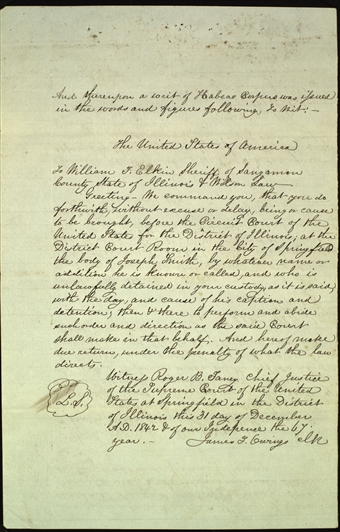 And thereupon a writ of Habeas Corpus was issued
in the words and figures following, to wit:-
The United States of America
To William F. Elkin Sheriff of Sangamon
County State of Illinois & Wilson Law-
Greeting - We command you, that you do
forthwith, without excuse or delay, bring or cause
to be brought before the Circuit Court of the
United State for the District of Illinois, at the
District Court Room in the City of Springfield
the body of Joseph Smith, by whatever name or
addition he is known or called, and who is
unlawfully detained in your custody, as it is said,
with the day, and cause of his caption and
detention, then & there to perform and abide
such order and direction as the said Court
shall make in that behalf. And hereof make
due return, under the penalty of what the law
directs.
Witness Roger B. Taney Chief Justice
of the Supreme Court of the United
States at Springfield in the District
of Illinois this 31 day of December
A.D. 1842 & of our Indepence the 67
year.-
James F. Owings Clk
L.S.